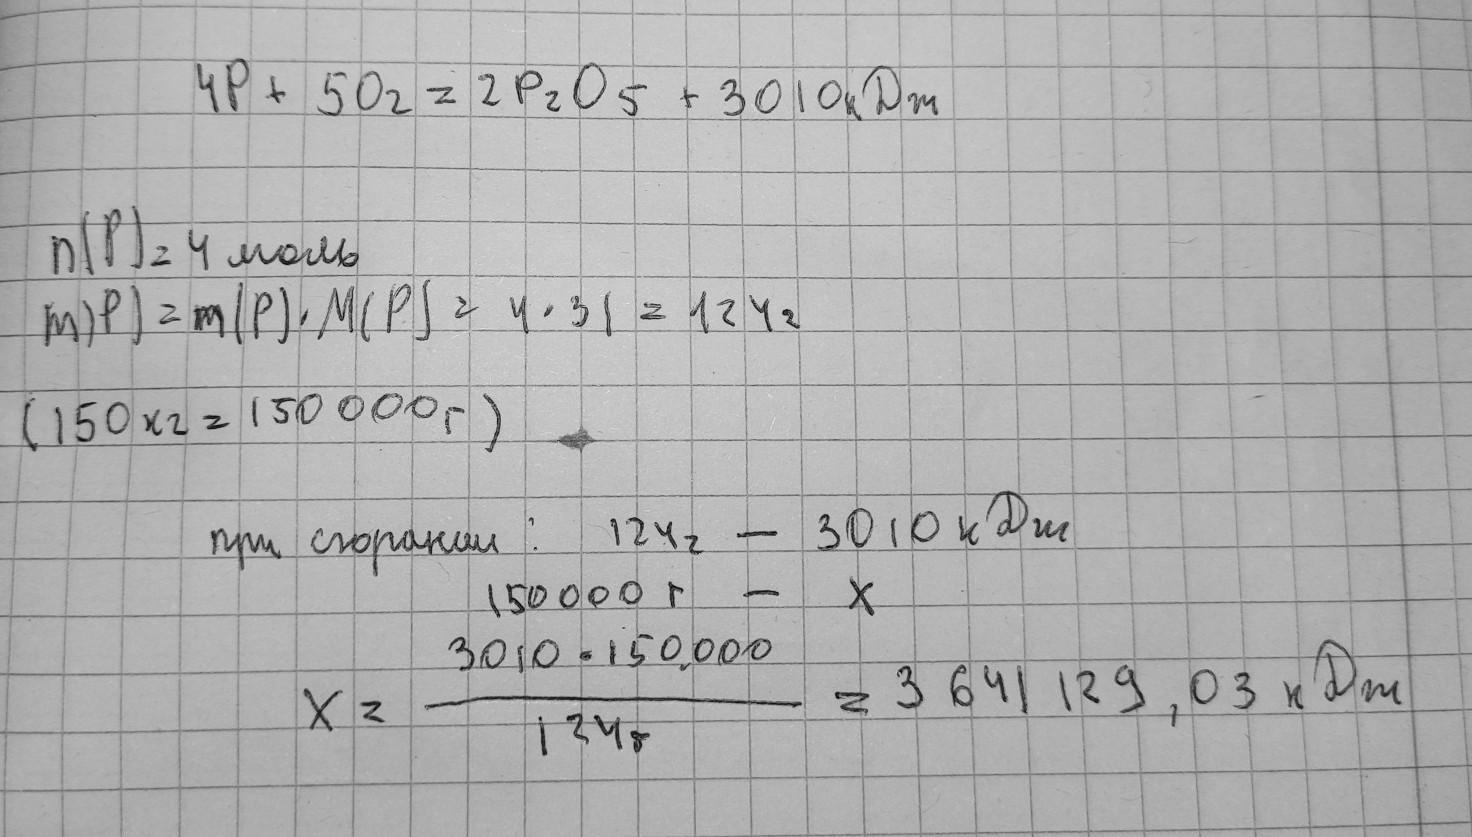 4P + 5O2 = 2P2O5 + 3010кДж
n(P) = 4 моль
m(P) = m(P) · M(P) = 4 · 31 = 124г
(150кг = 150 000г)
при сгорании: 124г — 3010кДж
150000г — x
3010 · 150.000
x = = 3 641 129,03 кДж
124г